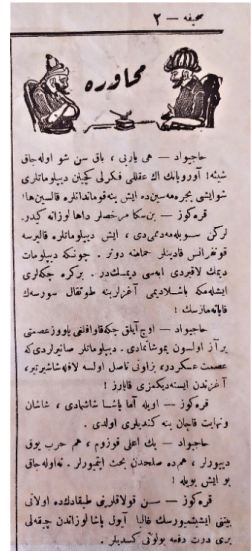 صحیفه — ۲
محاوره
حاجیواد — هی یارنی، باق سن شو اوله‌جاق
ایشه! آوروپانك اك عقللی فكرلی كچینن دیپلوماتلری
شو ایشی بجره‌مه‌سین‌ده ایش ینه قوماندانلره قالسین‌ها؛
قره‌كوز — بن سكا مرخصلر داها لوزانه كیدر
لركن سویله‌مه‌دم‌می‌دی، ایش دیپلوماتلره قالیرسه
قونفرانس قادینلر حمامنه دونر. چونكه دیپلومات
دیمك لاقیردی ابه‌سی دیمك‌در. بركره چكه‌لری
ایشله‌مكه باشلادیمی آغزلرینه طوتقال سورسه‌ك
قاپانه‌مازسك!
حاجیواد — اوچ آیلق چكه قاوافلغی یاووز عصمتی
بر آز اولسون یموشاتمادی. دیپلوماتلر صانیرلردی‌كه
عصمت عسكردر، بزاونی ناصل اولسه لافله شاشیرتیر،
آغزندن ایسته‌دیكمزی قاپارز!
قره‌كوز — اویله اما پاشا شاشمادی، شاشان
ونهایت قاچان ینه كندیلری اولدی.
حاجیواد — پك اعلی قوزوم، هم حرب یوق
دییورلر، هم‌ده صلحدن بحث ایتمیورلر. نه اوله‌جاق
بو ایش بویله!
قره‌كوز — سن قولاقلرینی طیقادك‌ده اولانی
بیتنی ایشیتمیورسك غالبا
پاشا لوزاندن چیقه‌لی
بری درت دفعه بولوتی كسدیلر.